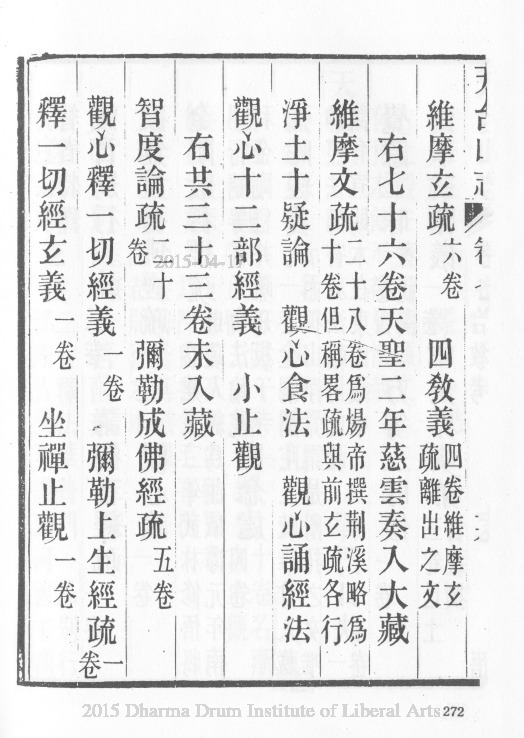 天台山志
維摩玄疏六卷　四教義四卷維摩玄疏離出之文
右七十六卷天聖二年慈雲奏入大藏
維摩文疏十八卷爲煬帝撰荆溪略爲十卷但稱畧疏與前玄疏各行
淨土十疑論　觀心食法　觀心誦經法
觀心十二部經義　小止觀
右共三十卷未入藏
智度論疏十卷　彌勒成佛經疏五卷
觀心釋一切經義一卷　彌勒上生經疏一卷
釋一切經玄義一卷　坐禪止觀一卷
2015-04-17
2015 Dharma Drum Institute of Liberal Arts
272